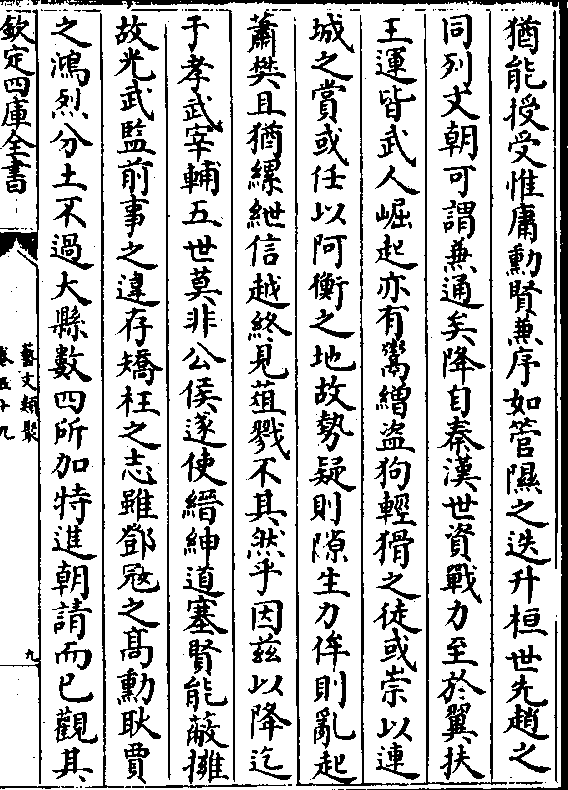 猶能授受惟庸勳賢兼序如管隰之迭升桓世先趙之
同列文朝可謂兼通矣降自秦漢世資戰力至於翼扶
王運皆武人崛起亦有鬻繒盜狗輕猾之徒或崇以連
城之賞或任以阿衡之地故勢疑則隙生力侔則亂起
蕭樊且猶縲紲信越終見葅戮不其然乎因兹以降迄
于孝武宰輔五世莫非公侯遂使縉紳道塞賢能蔽擁
故光武監前事之違存矯枉之志雖鄧㓂之髙勳耿賈
之鴻烈分土不過大縣數四所加特進朝請而已觀其
欽定四庫全書
藝文類聚
卷五十九
九